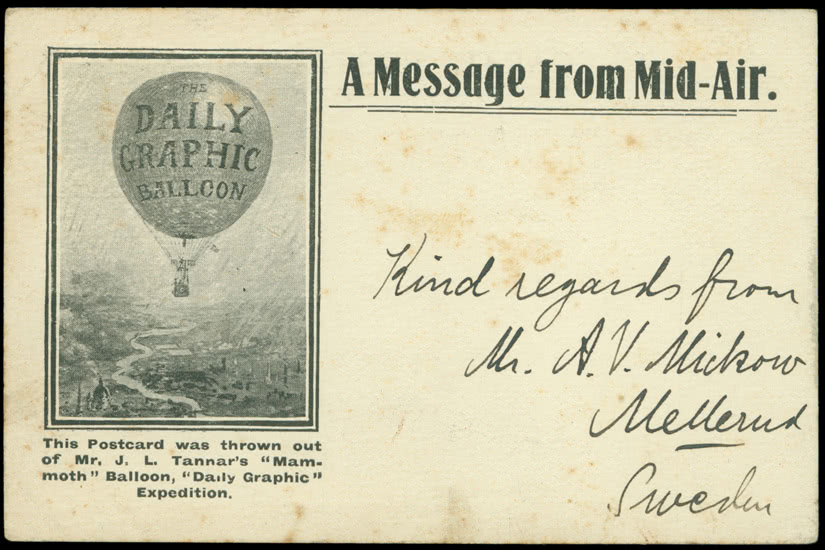 A Message from Mid-Air.
THE
DAILY
GRAPHIC
BALLOON
Kind regards from
Mr. A. V. Mickow
Mellerud
Sweden
This Postcard was thrown out
of Mr. J. L. Tannar's "Mam-
moth" Balloon, "Daily Graphic"
Expedition.